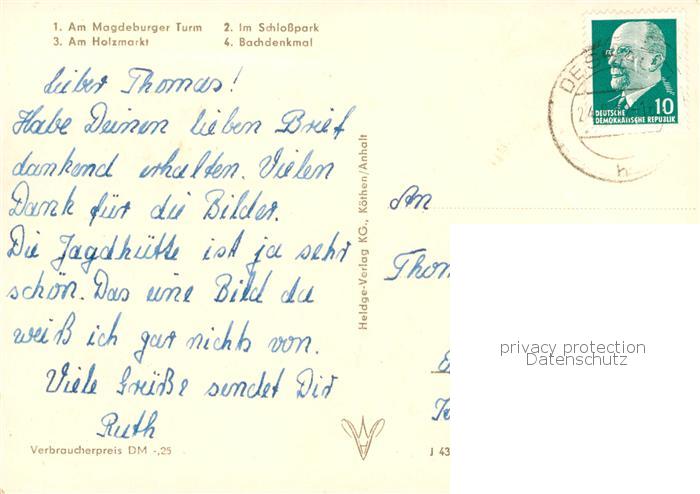 1. Am Magdeburger Turm 2. Im Schloßpark
3. Am Holzmarkt 4. Bachdenkmal
Lieber Thomas!
Habe Deinen lieben Brief
dankend erhalten. Vielen
Dank für die Bilder.
Die Jagdhütte ist ja sehr
schön. Das eine Bild da
weiß ich gar nichts von.
Viele Grüße sendet Dir
Ruth
Verbraucherpreis DM -,25
Heldge-Verlag KG., Köthen/Anhalt
DEUTSCHE
DEMOKRATISCHE REPUBLIK
10
DES
h
An
Thom
privacy protection
Datenschutz
J 43